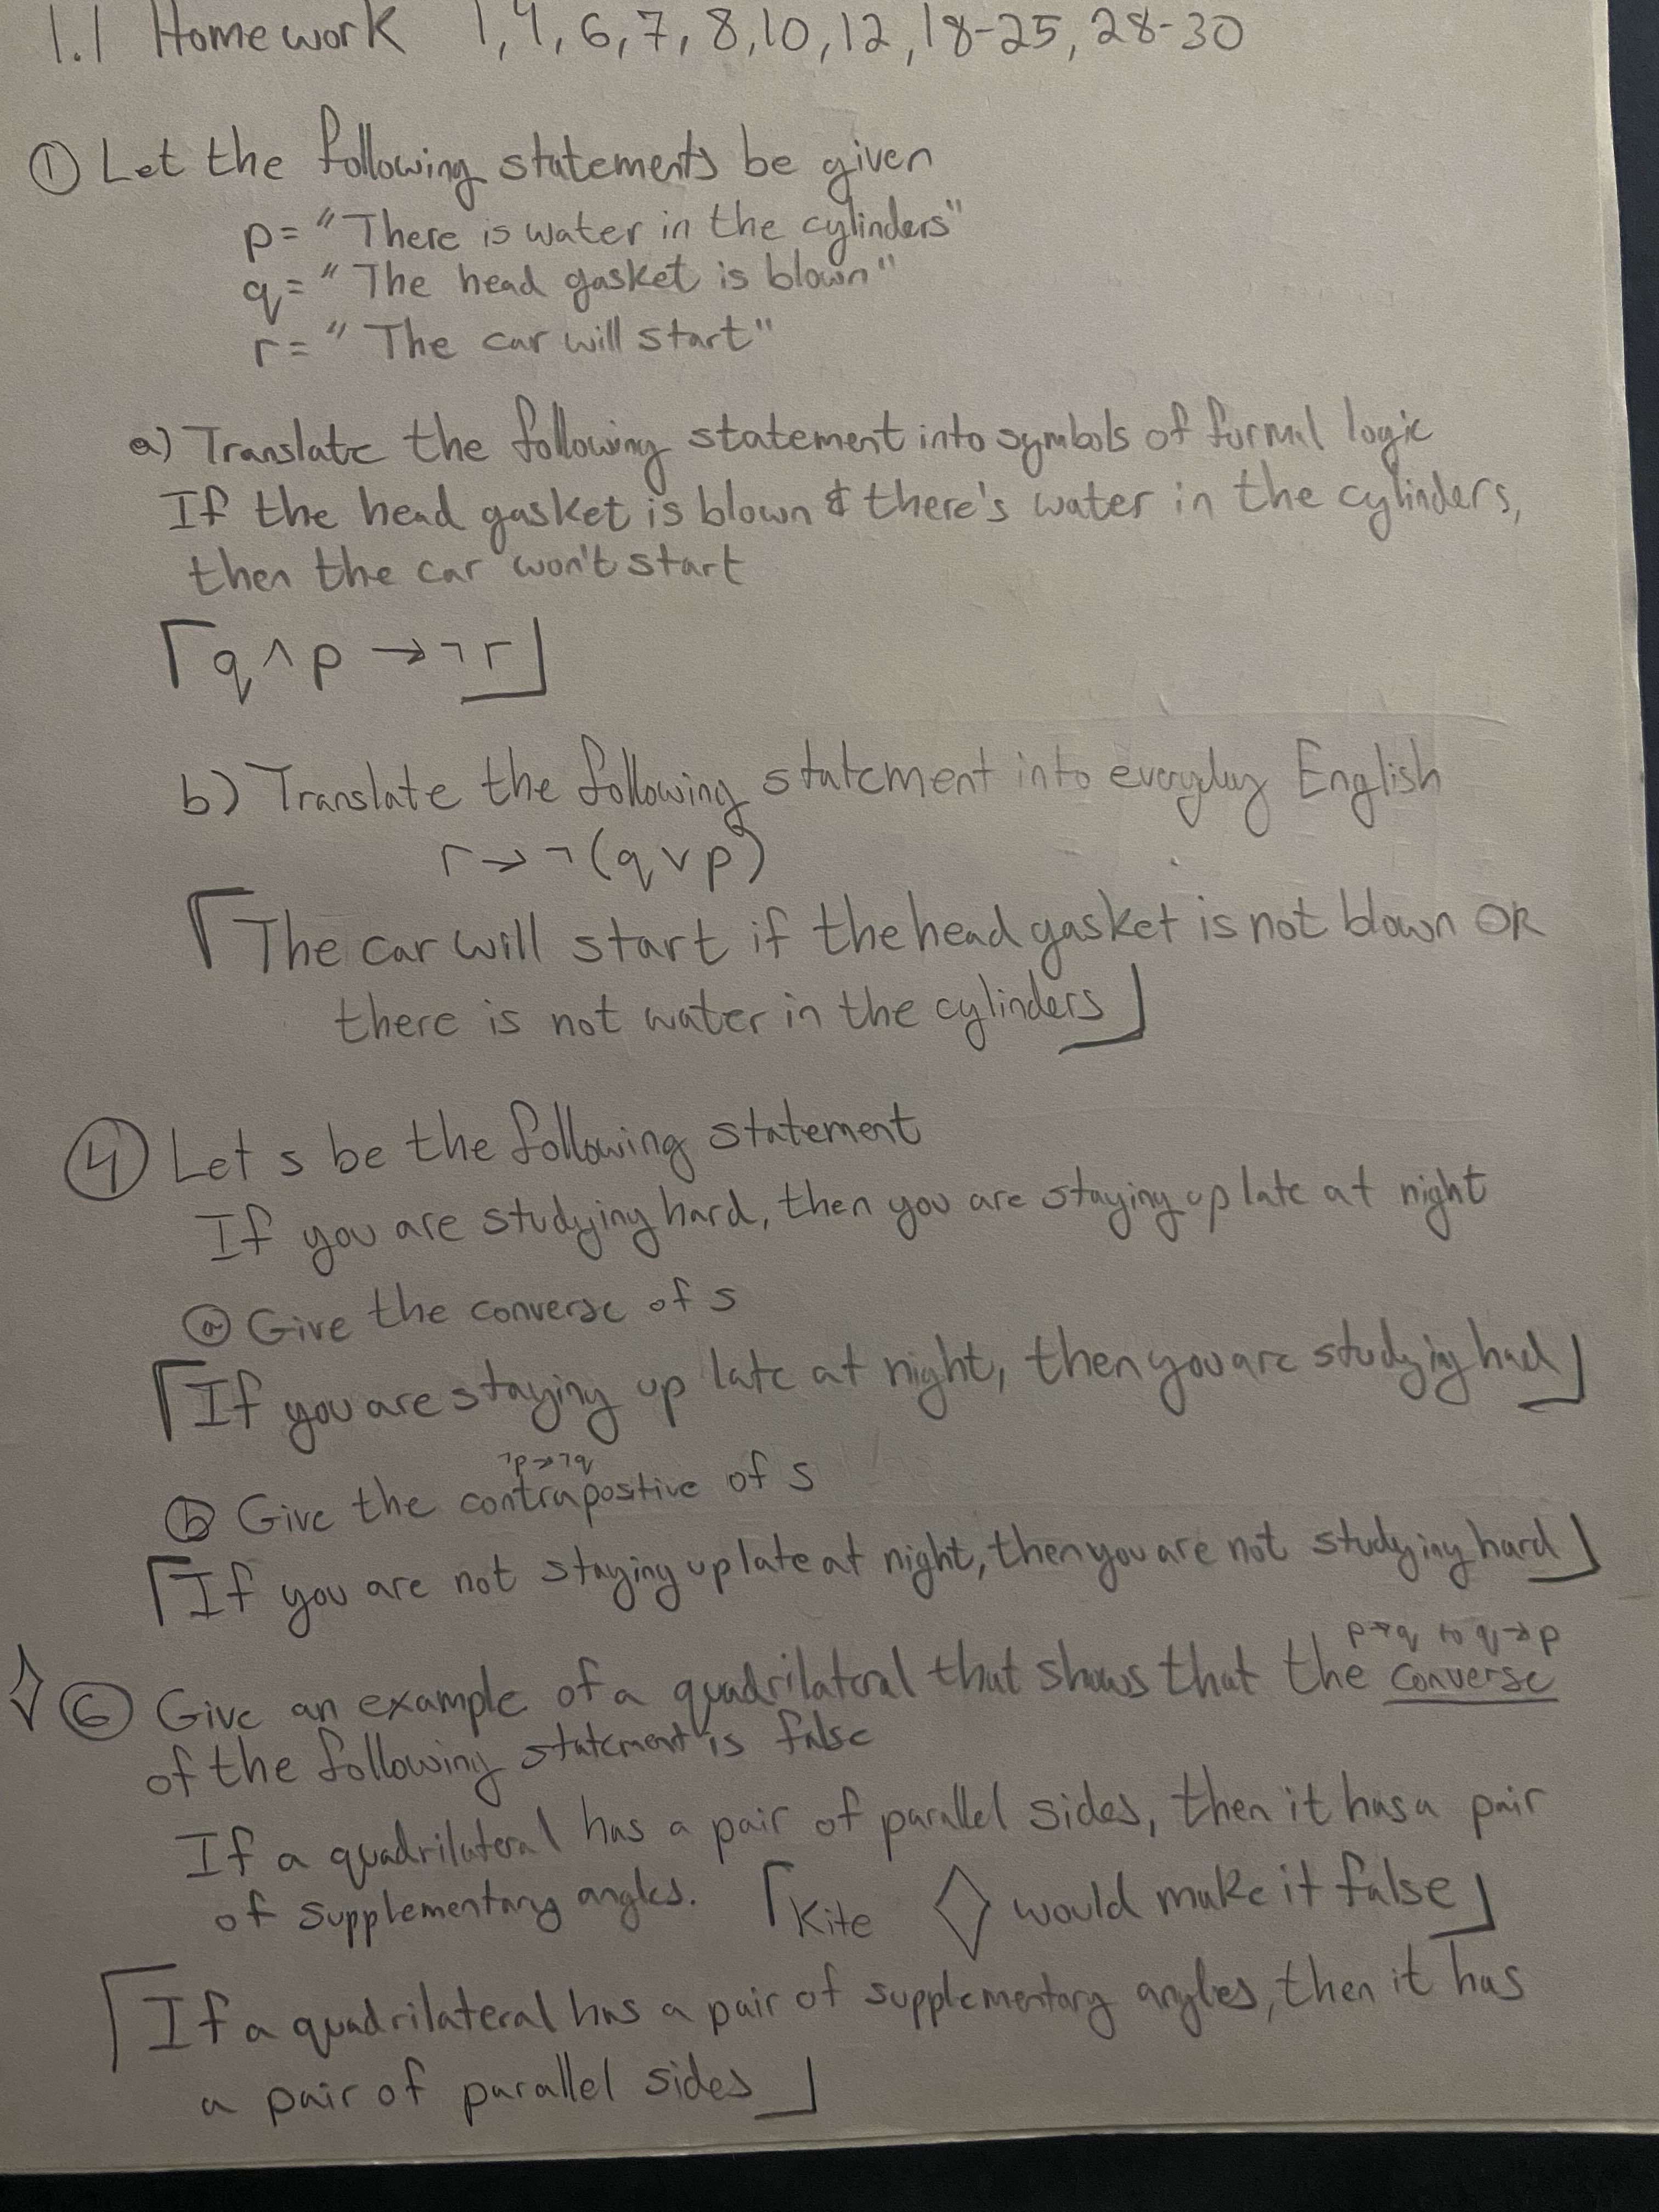 1.1 Homework 1, 4, 6, 7, 8, 10, 12, 18-25, 28-30
① Let the following statements be given
p = "There is water in the cylinders"
q = "The head gasket is blown"
r = "The car will start"
a) Translate the following statement into symbols of formal logic
If the head gasket is blown & there's water in the cylinders,
then the car won't start
q ∧ p → ¬r
b) Translate the following statement into everyday English
r → ¬(q ∨ p)
The car will start if the head gasket is not blown OR
there is not water in the cylinders
④ Let s be the following statement
If you are studying hard, then you are staying up late at night
ⓐ Give the converse of s
If you are staying up late at night, then you are studying hard
¬p→¬q
ⓑ Give the contrapostive of s
If you are not staying up late at night, then you are not studying hard
p→q to q→p
⑥ Give an example of a quadrilateral that shows that the converse
of the following statement is false
If a quadrilateral has a pair of parallel sides, then it has a pair
of supplementary angles. Kite would make it false
If a quadrilateral has a pair of supplementary angles, then it has
a pair of parallel sides